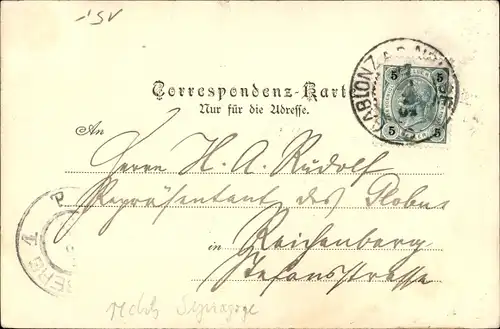 ISV
GABLONZ A.D. N
5 5
5 5
Correspondenz-Karte
Nur für die Adresse.
An
Herrn H. A. Rudolf
Repräsentant des Globus
in Reichenberg
Stefansstrasse
P
1
BERG
rechts Synagoge